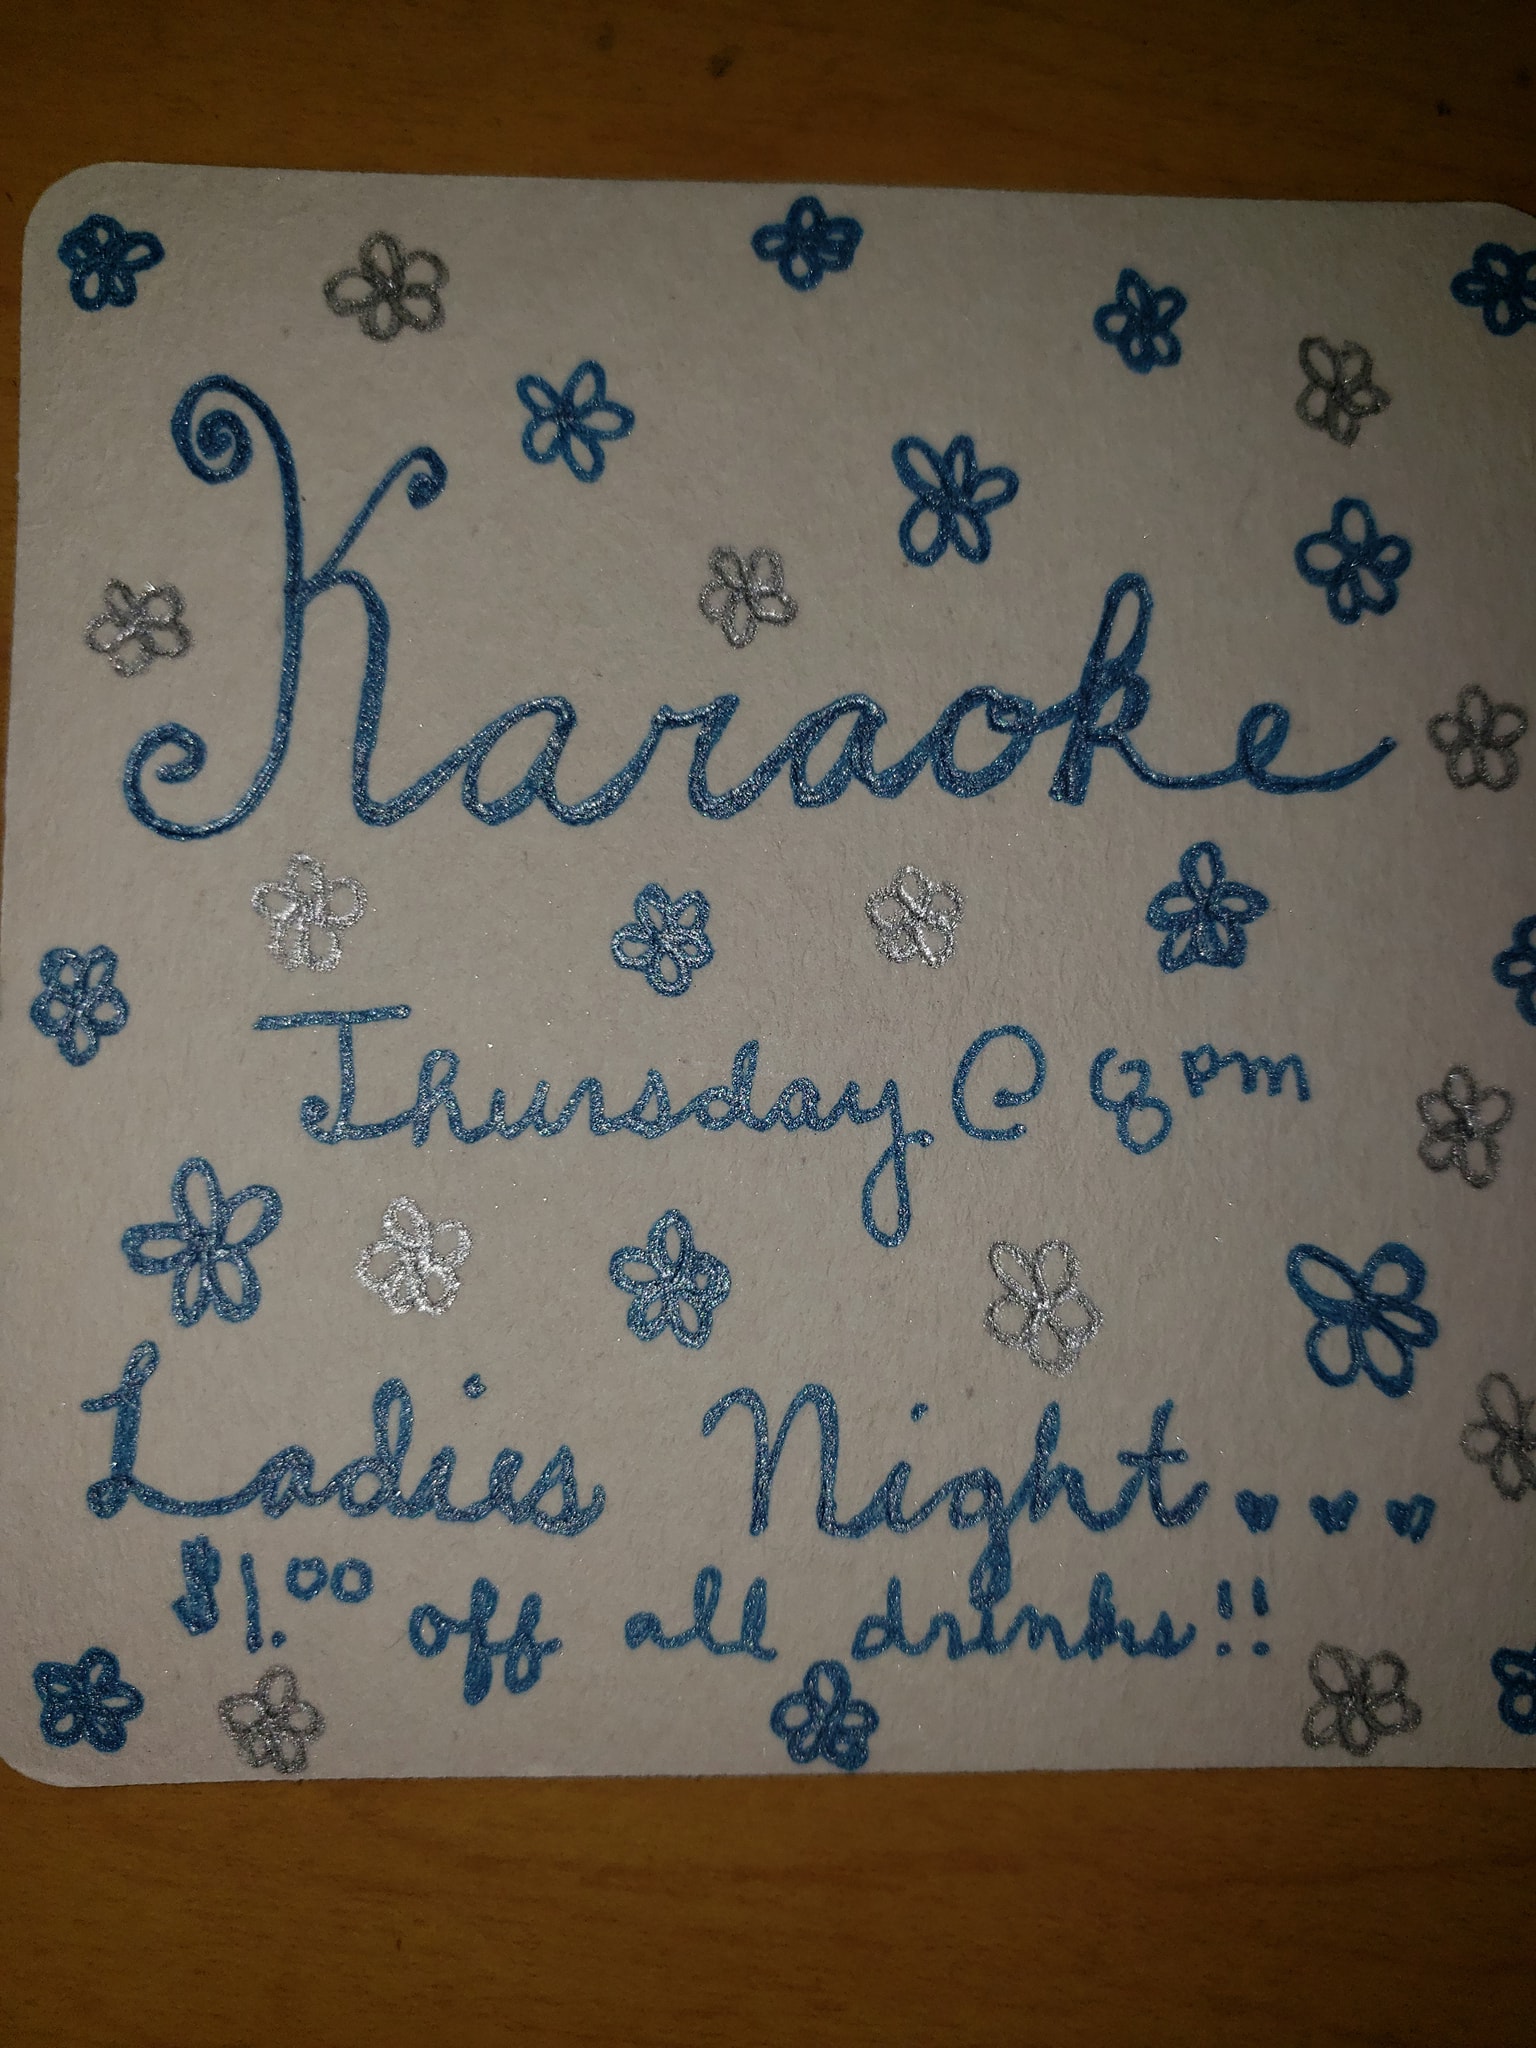 Karaoke
Thursday @ 8pm
Ladies Night...
$1.00 off all drinks!!